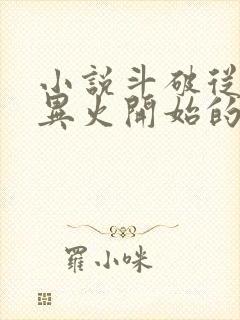 小說斗破從
異火開始的
羅小咪